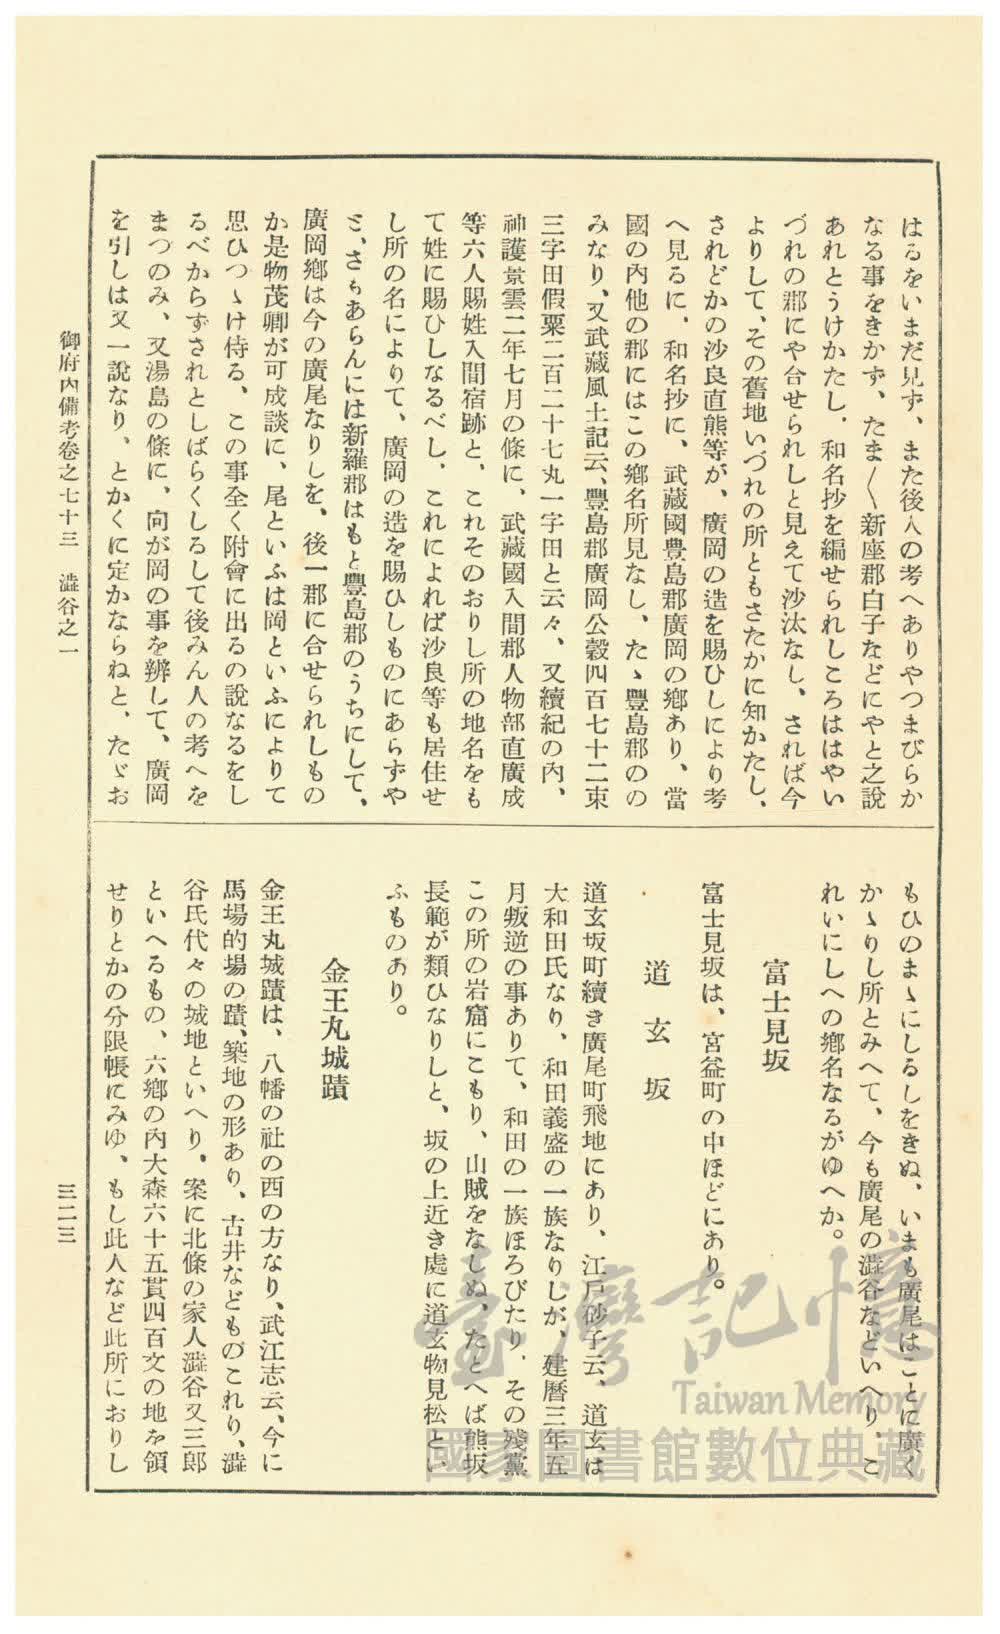 はるをいまだ見ず、また後人の考へありやつまびらか
なる事をきかず、たま〱新座郡白子などにやと之說
あれとうけかたし、和名抄を編せられしころははやい
づれの郡にや合せられしと見えて沙汰なし、されば今
よりして、その舊地いづれの所ともさたかに知かたし、
されどかの沙良直熊等が、廣岡の造を賜ひしにより考
へ見るに、和名抄に、武藏國豊島郡廣岡の鄉あり、當
國の內他の郡にはこの鄉名所見なし、たゝ豐島郡のの
みなり、又武藏風土記云、豐島郡廣岡公穀四百七十二束
三字田假粟二百二十七丸一字田と云々、又續紀の內、
神護景雲二年七月の條に、武藏國入間郡人物部直廣成
等六人賜姓入間宿跡と、これそのおりし所の地名をも
て姓に賜ひしなるべし、これによれば沙良等も居住せ
し所の名によりて、廣岡の造を賜ひしものにあらずや
と、さもあらんには新羅郡はもと豐島郡のうちにして、
廣岡鄉は今の廣尾なりしを、後一郡に合せられしもの
か是物茂卿が可成談に、尾といふは岡といふによりて
思ひつゝけ侍る、この事全く附會に出るの說なるをし
るべからずされとしばらくしるして後みん人の考へを
まつのみ、又湯島の條に、向が岡の事を辨して、廣岡
を引しは又一說なり、とかくに定かならねと、たゞお
もひのまゝにしるしをきぬ、いまも廣尾はことに廣く
かゝりし所とみへて、今も廣尾の澁谷などいへり、こ
れいにしへの鄉名なるがゆへか。
富士見坂
富士見坂は、宮益町の中ほどにあり。
道玄坂
道玄坂町續き廣尾町飛地にあり、江戶砂子云、道玄は
大和田氏なり、和田義盛の一族なりしが、建曆三年五
月叛逆の事ありて、和田の一族ほろびたり、その殘黨
この所の岩窟にこもり、山賊をなしぬ、たとへば熊坂
長範が類ひなりしと、坂の上近き處に道玄物見松とい
ふものあり。
金王丸城蹟
金王丸城蹟は、八幡の社の西の方なり、武江志云、今に
馬場的場の蹟、築地の形あり、古井などものこれり、澁
谷氏代々の城地といへり、案に北條の家人澁谷又三郎
といへるもの、六鄉の內大森六十五貫四百文の地を領
せりとかの分限帳にみゆ、もし此人など此所におりし
御府內備考卷之七十三 澁谷之一
三二三
臺灣記憶
Taiwan Memory
國家圖書館數位典藏